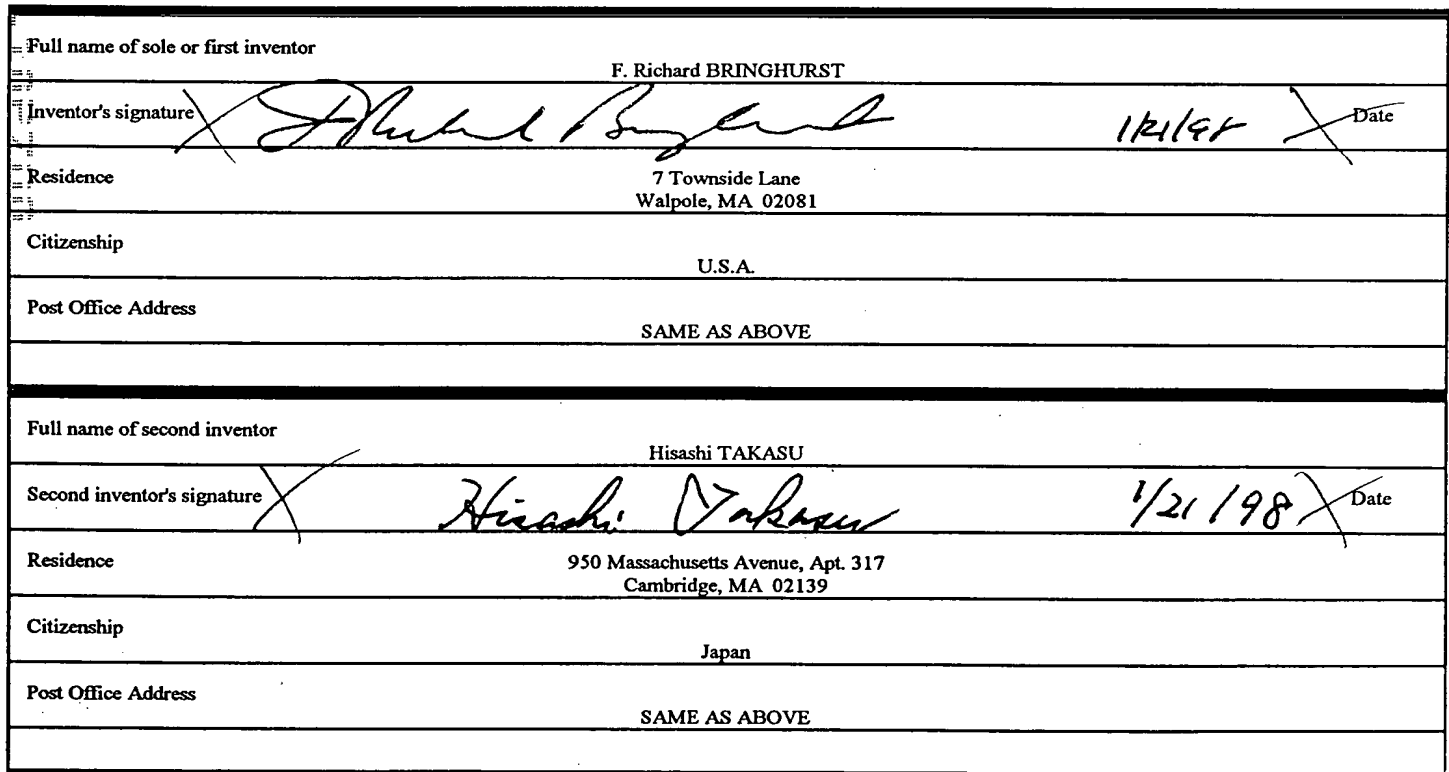 Full name of sole or first inventor
F. Richard BRINGHURST
Inventor's signature F Richard Bringhurst 1/21/98 Date
Residence 7 Townside Lane
Walpole, MA 02081
Citizenship
U.S.A.
Post Office Address
SAME AS ABOVE
Full name of second inventor
Hisashi TAKASU
Second inventor's signature Hisashi Takasu 1/21/98 Date
Residence 950 Massachusetts Avenue, Apt. 317
Cambridge, MA 02139
Citizenship
Japan
Post Office Address
SAME AS ABOVE